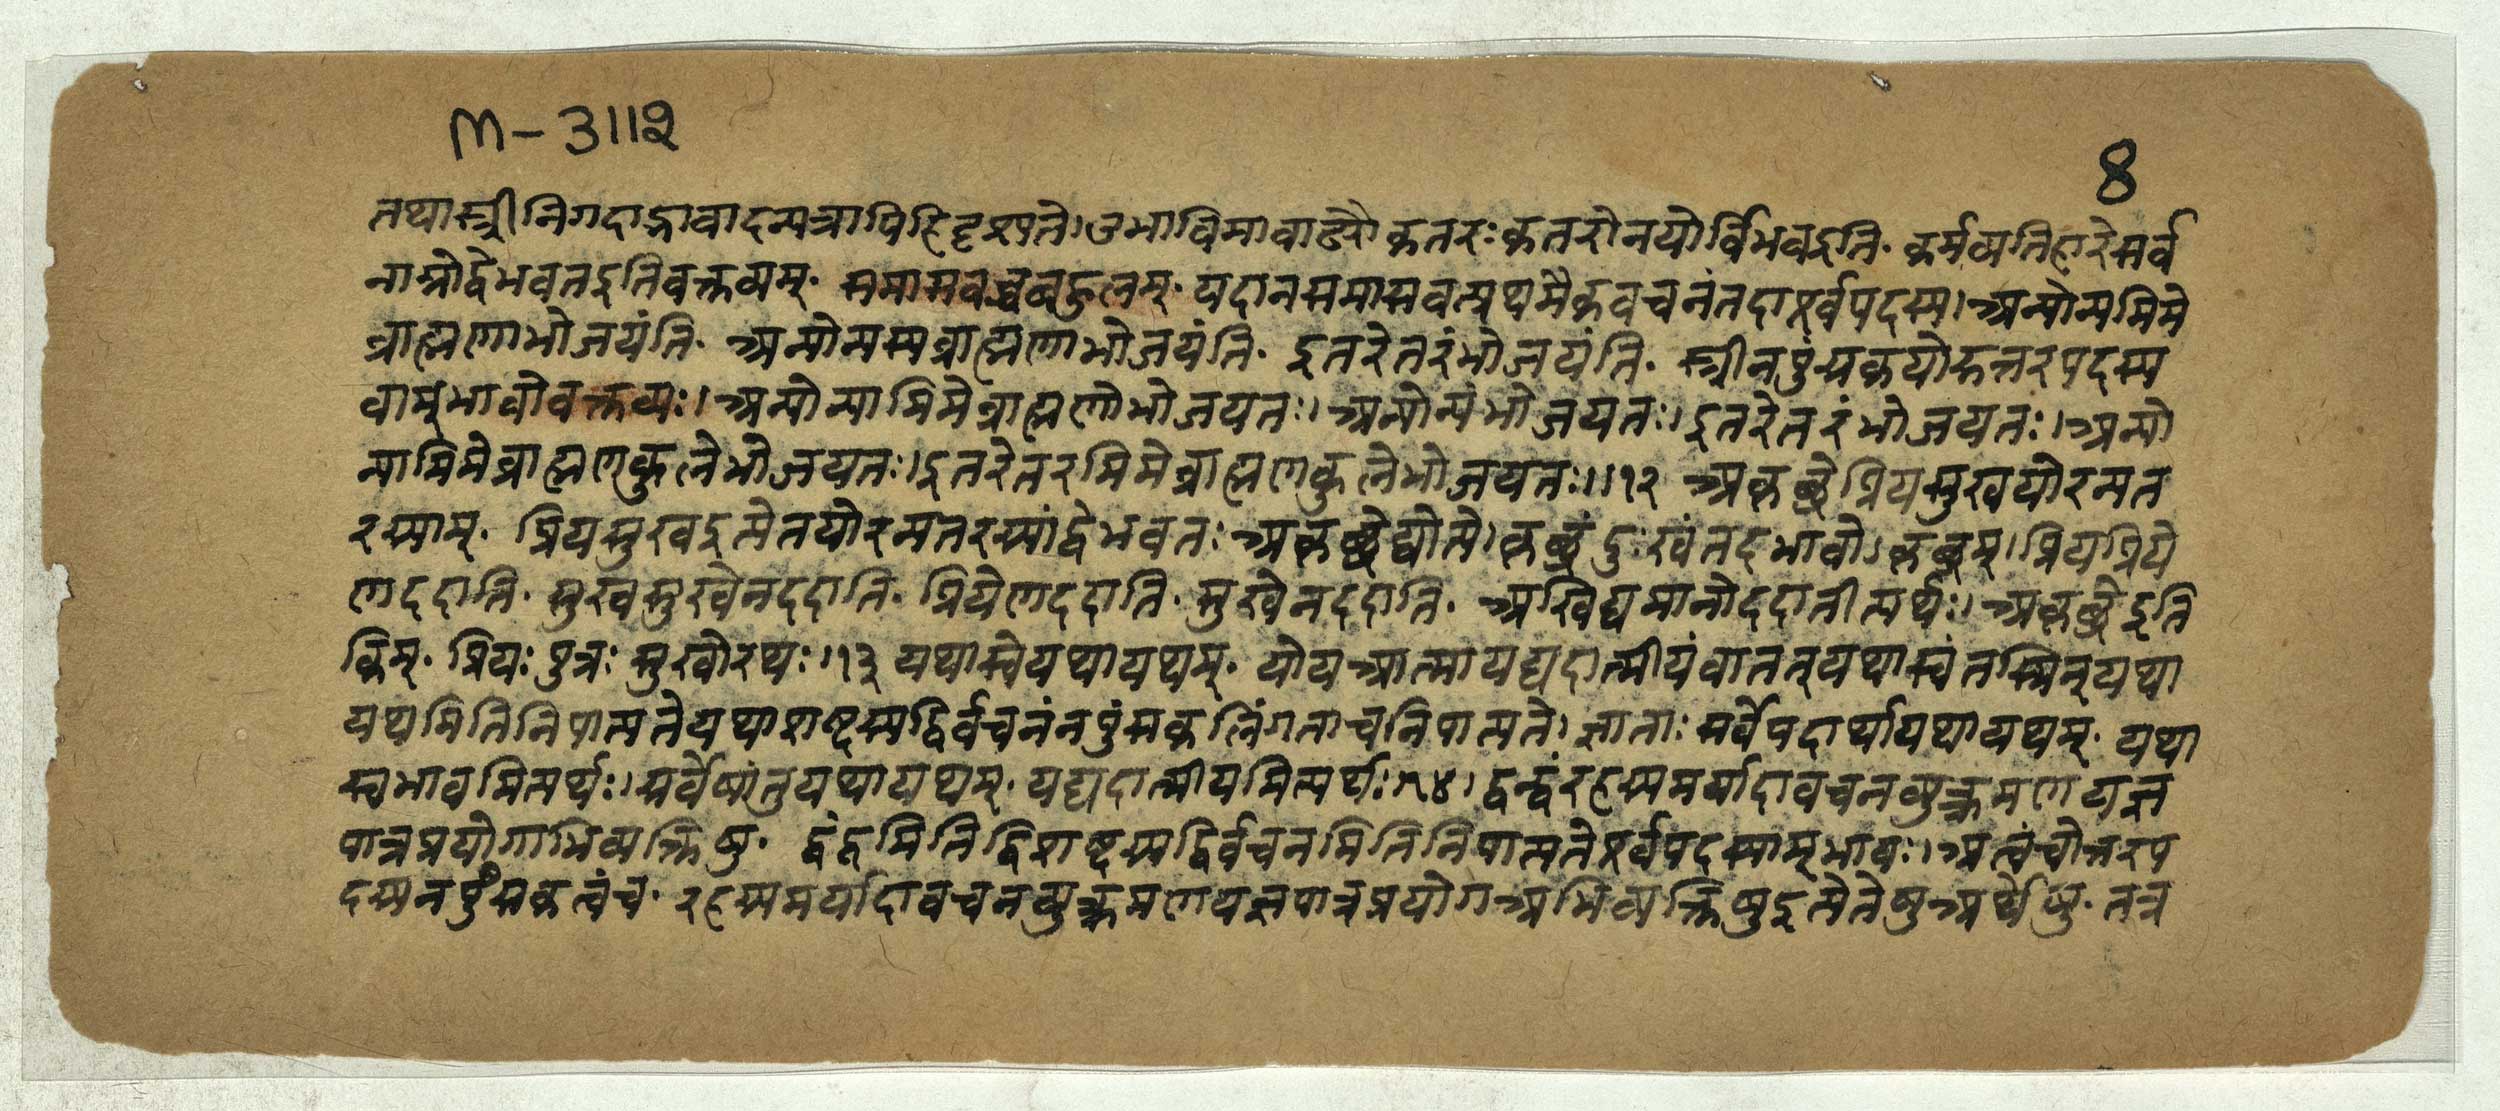 M-3112
8
तथास्त्रीनिगदाद्भावादन्यत्रापिहिदृश्यते।उभाविमावाढ्यौकतरःकतरोनयोर्विभवइति॰ कर्मव्यतिहारेसर्व
नाम्नोद्वेभवतइतिवक्तव्यम्॰ समासवच्चबहुलम्॰ यदानसमासवत्प्रथमैकवचनंतदापूर्वपदस्य।अन्योन्यमिमे
ब्राह्मणाभोजयंति॰ अन्योन्यस्यब्राह्मणाभोजयंति॰ इतरेतरंभोजयंति॰ स्त्रीनपुंसकयोरुत्तरपदस्य
वाम्भावोवक्तव्यः।अन्योन्यामिमेब्राह्मण्यौभोजयतः।अन्योन्यंभोजयतः।इतरेतरंभोजयतः।अन्यो
न्यामिमेब्राह्मणकुलेभोजयतः।इतरेतरमिमेब्राह्मणकुलेभोजयतः।।१२ अकृच्छ्रेप्रियसुखयोरन्यत
रस्याम्॰ प्रियसुखइत्येतयोरन्यतरस्यांद्वेभवतःअकृच्छ्रेद्योत्ये।कृच्छ्रंदुःखंतदभावो।कृच्छ्रम्।प्रियप्रिये
णददाति॰ सुखसुखेनददाति॰ प्रियेणददाति॰ सुखेनददाति॰ अखिद्यमानोददातीत्यर्थः।अकृच्छ्रेइति
किम्॰ प्रियःपुत्रःसुखोरथः।१३ यथास्वेयथायथम्॰ योयआत्मायद्यदात्मीयंवातत्यथास्वंतस्मिन्यथा
यथमितिनिपात्यतेयथाशब्दस्यद्विर्वचनंनपुंसकलिंगताचनिपात्यते।ज्ञाताःसर्वेपदार्थायथायथम्॰ यथा
स्वभावमित्यर्थः।सर्वेषांतुयथायथम्॰ यद्यदात्मीयमित्यर्थः।१४।द्वन्द्वंरहस्यमर्यादावचनव्युत्क्रमणयज्ञ
पात्रप्रयोगाभिव्यक्तिषु॰ द्वंद्वमितिद्विशब्दस्यद्विर्वचनमितिनिपात्यतेपूर्वपदस्याम्भावः।अत्वंचोत्तरप
दस्यनपुँसकत्वंच॰ रहस्यमर्यादावचनव्युत्क्रमणयज्ञपात्रप्रयोगअभिव्यक्तिषुइत्येतेषुअर्थेषु॰ तत्र